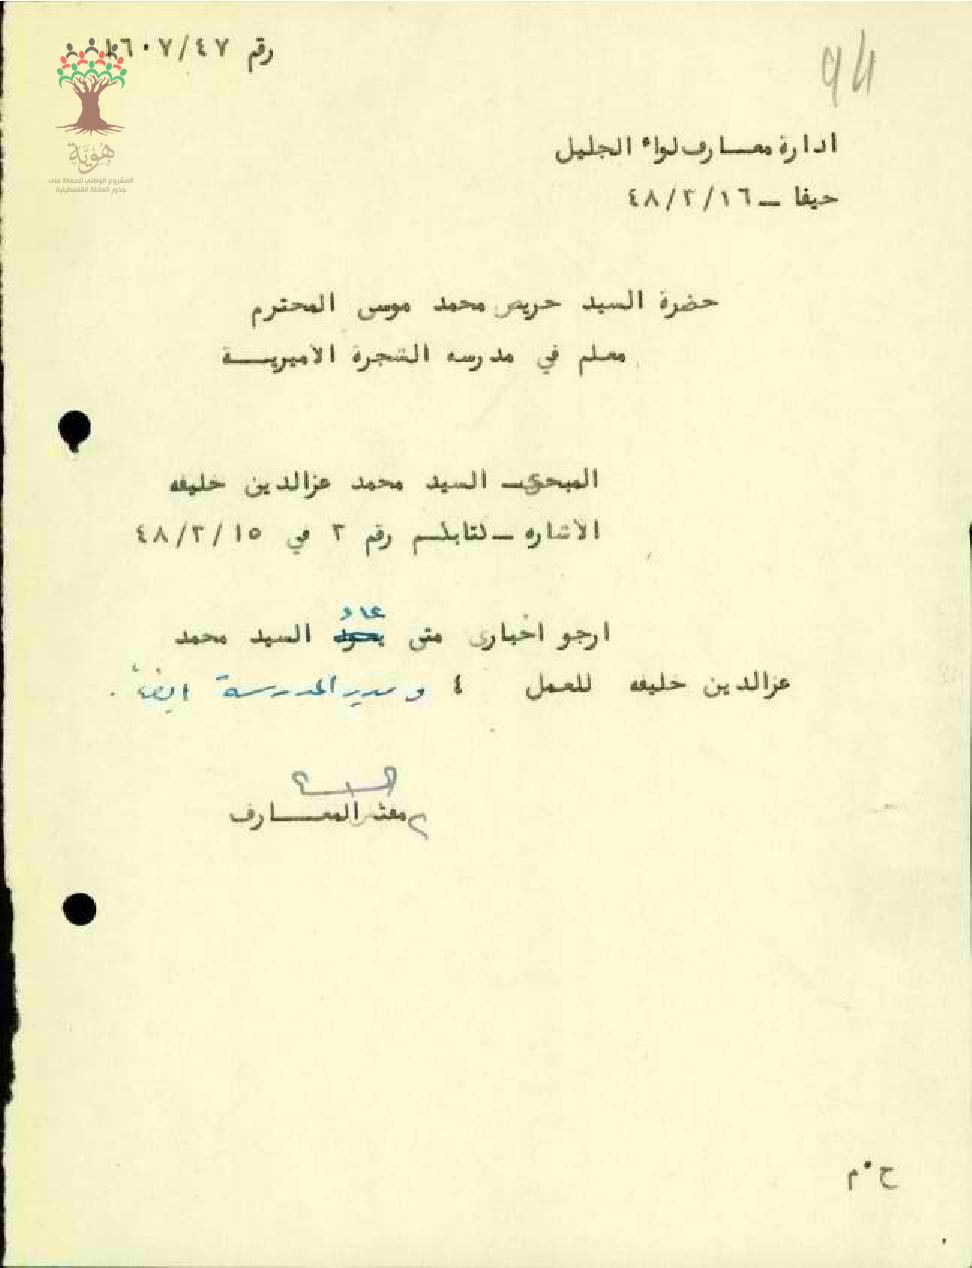 رقم ١٦٠٧/٤٧
94
هوية
المشروع الوطني للحفاظ على
جذور العائلة الفلسطينية
ادارة معارف لواء الجليل
حيفا – ٤٨/٢/١٦
حضرة السيد حريص محمد موسى المحترم
معلم في مدرسه الشجرة الاميرية
المبحث – السيد محمد عزالدين خليفه
الاشاره – لكتابكم رقم ٢ في ٤٨/٢/١٥
ارجو اخباري متى عاد السيد محمد
عزالدين خليفه للعمل ٤ ومدير المدرسة ايضاً .
مفتش المعارف
ح٠م